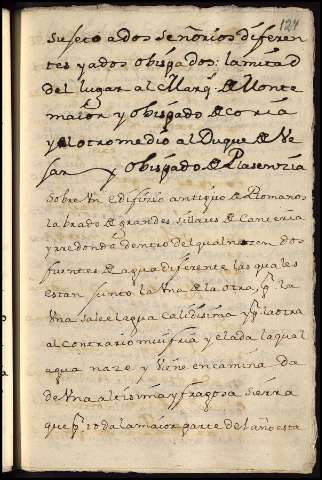 127
sujeto a dos señorios diferen
tes y a dos obispados: la mitad
del lugar al Marq̃ de Monte
maior y obispado de Coria
y el otro medio al Duque de Ve
jar y obispado de Plasenzia
Sobre Vn edifizio antiguo de Romanos
labrado de grandes sillares de Canteria
y rredondo dentro del qual nazen dos
fuentes de agua diferente las quales
estan junto la Vna de la otra, q̃ la
Vna sale el agua Calidisima y q̃ la otra
al Contrario mui fria y elada la qual
agua naze y Viene encamina da
de Vna altisima y fragosa sierra
que q̃ toda la maior parte del año esta